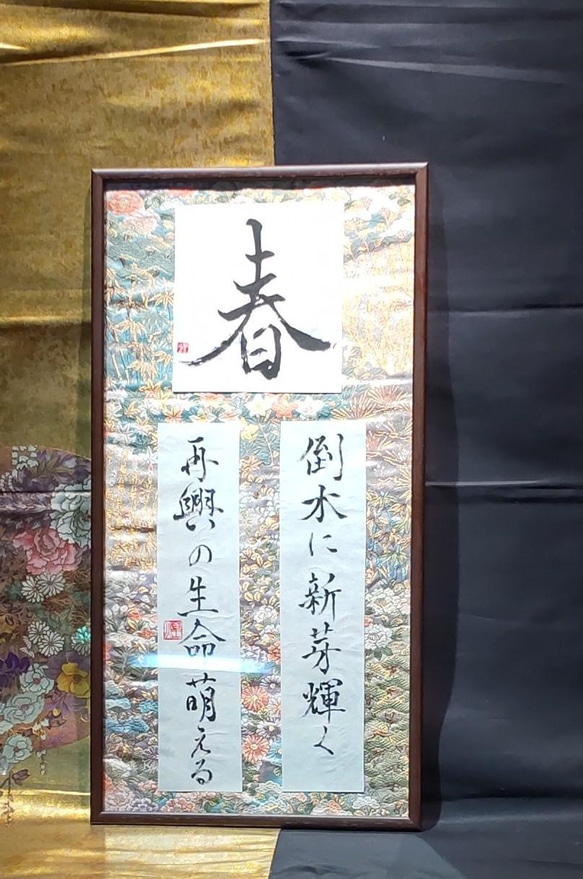 春
倒木に新芽輝く
再興の生命萌える